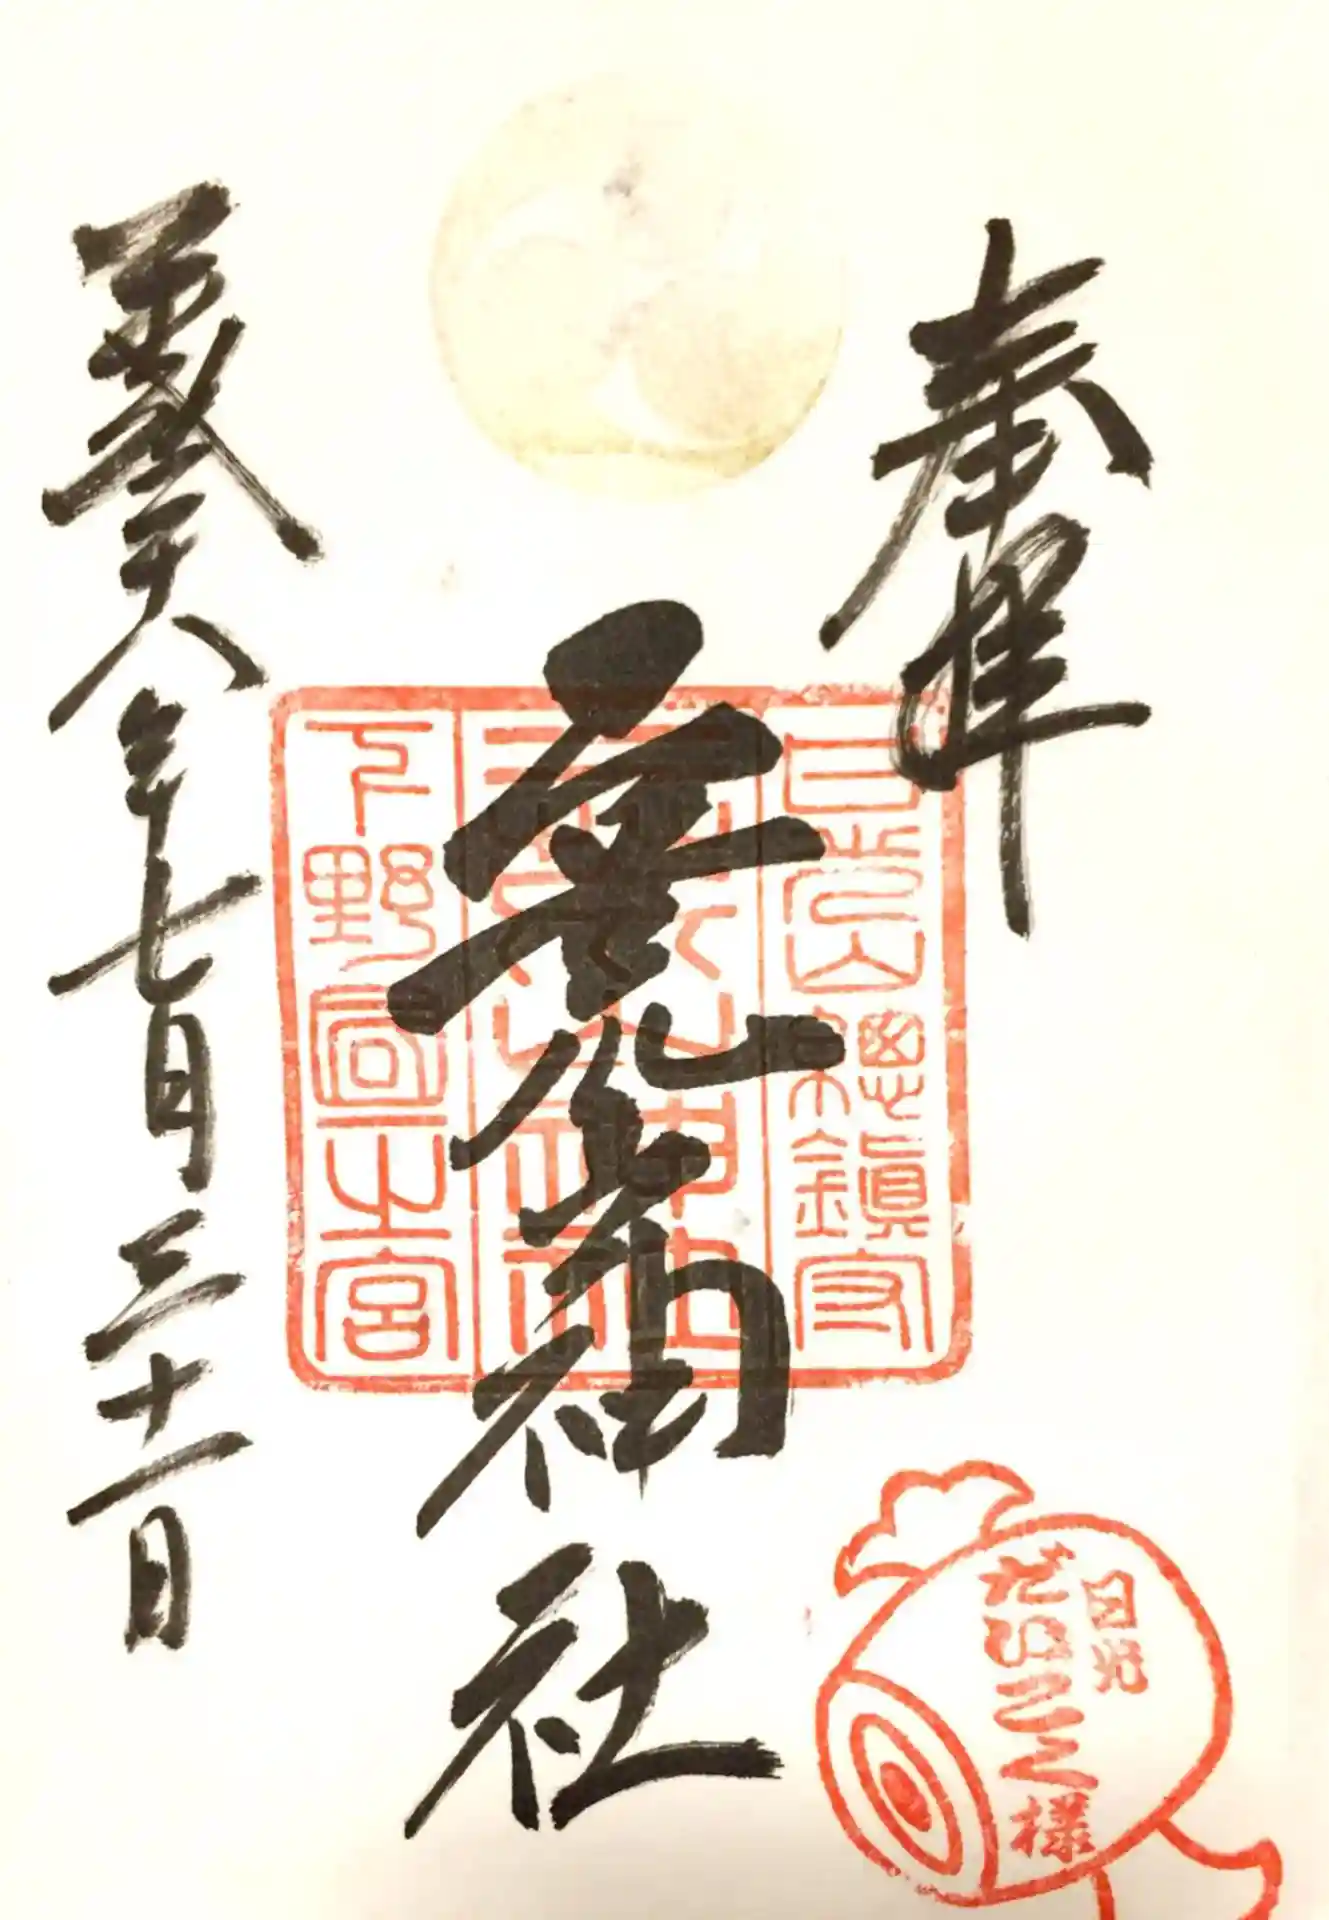 奉拝
日光山總鎮守
二荒山神社
二荒山神社
下野國一之宮
平成二十八年七月三十一日
日光
だいこく様